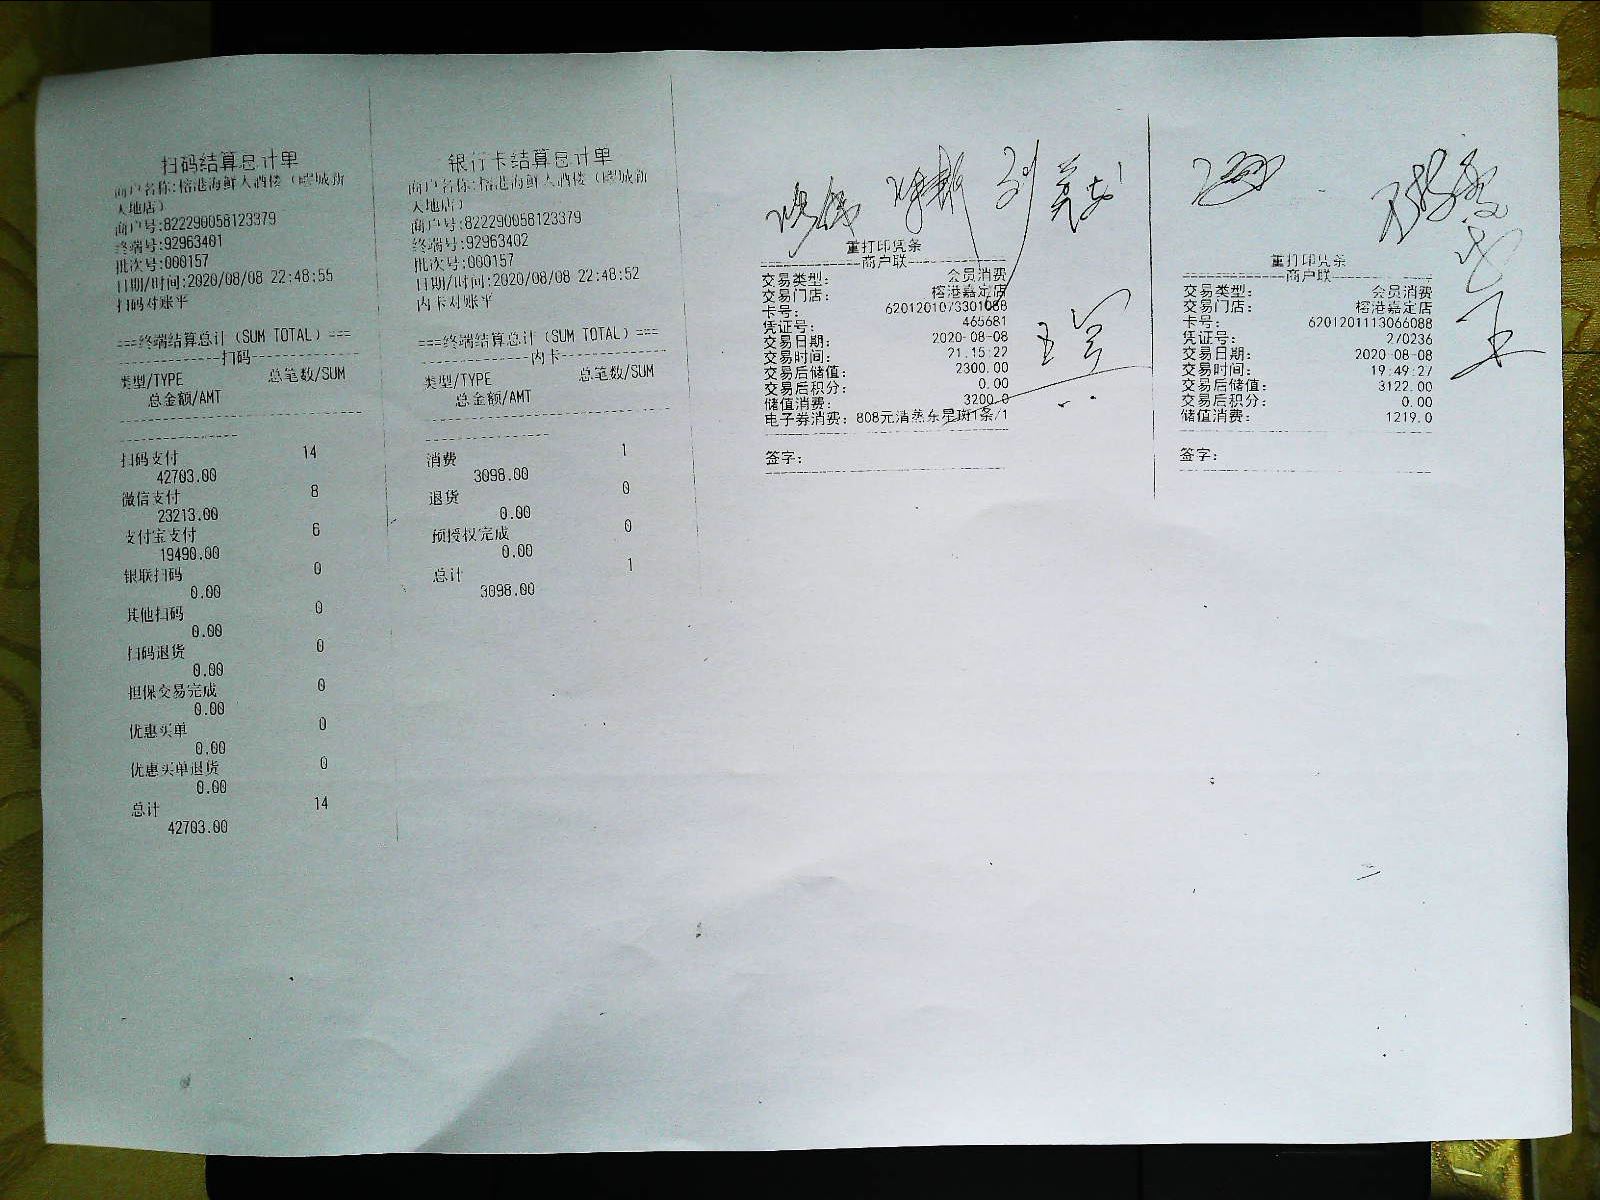 扫码结算总计单
商户名称:榕港海鲜大酒楼（疁城新
天地店）
商户号:822290058123379
终端号:92963401
批次号:000157
日期/时间:2020/08/08 22:48:55
扫码对账平
===终端结算总计（SUM TOTAL）===
扫码
类型/TYPE 总笔数/SUM
总金额/AMT
扫码支付 14
42703.00
微信支付 8
23213.00
支付宝支付 6
19490.00
银联扫码 0
0.00
其他扫码 0
0.00
扫码退货 0
0.00
担保交易完成 0
0.00
优惠买单 0
0.00
优惠买单退货 0
0.00
总计 14
42703.00
银行卡结算总计单
商户名称:榕港海鲜大酒楼（疁城新
天地店）
商户号:822290058123379
终端号:92963402
批次号:000157
日期/时间:2020/08/08 22:48:52
内卡对账平
===终端结算总计（SUM TOTAL）===
内卡
类型/TYPE 总笔数/SUM
总金额/AMT
消费 1
3098.00
退货 0
0.00
预授权完成 0
0.00
总计 1
3098.00
重打印凭条
商户联
交易类型: 会员消费
交易门店: 榕港嘉定店
卡号: 6201201073301088
凭证号: 465681
交易日期: 2020-08-08
交易时间: 21:15:22
交易后储值: 2300.00
交易后积分: 0.00
储值消费: 3200.0
电子券消费: 808元清蒸东星斑1条/1
签字:
重打印凭条
商户联
交易类型: 会员消费
交易门店: 榕港嘉定店
卡号: 6201201113066088
凭证号: 270236
交易日期: 2020-08-08
交易时间: 19:49:27
交易后储值: 3122.00
交易后积分: 0.00
储值消费: 1219.0
签字: